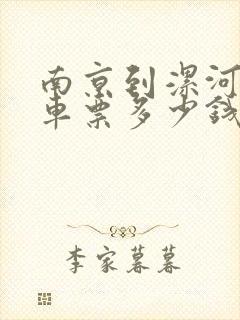 南京到漯河
车票多少钱
李家暮暮